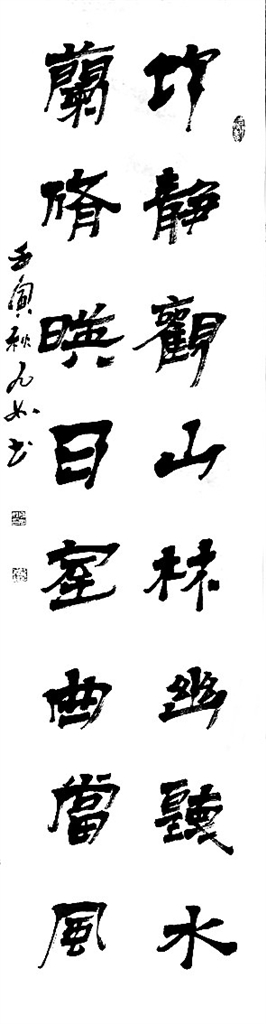 竹静觀山林幽聽水
蘭脩映日室曲當風
壬寅秋九如书